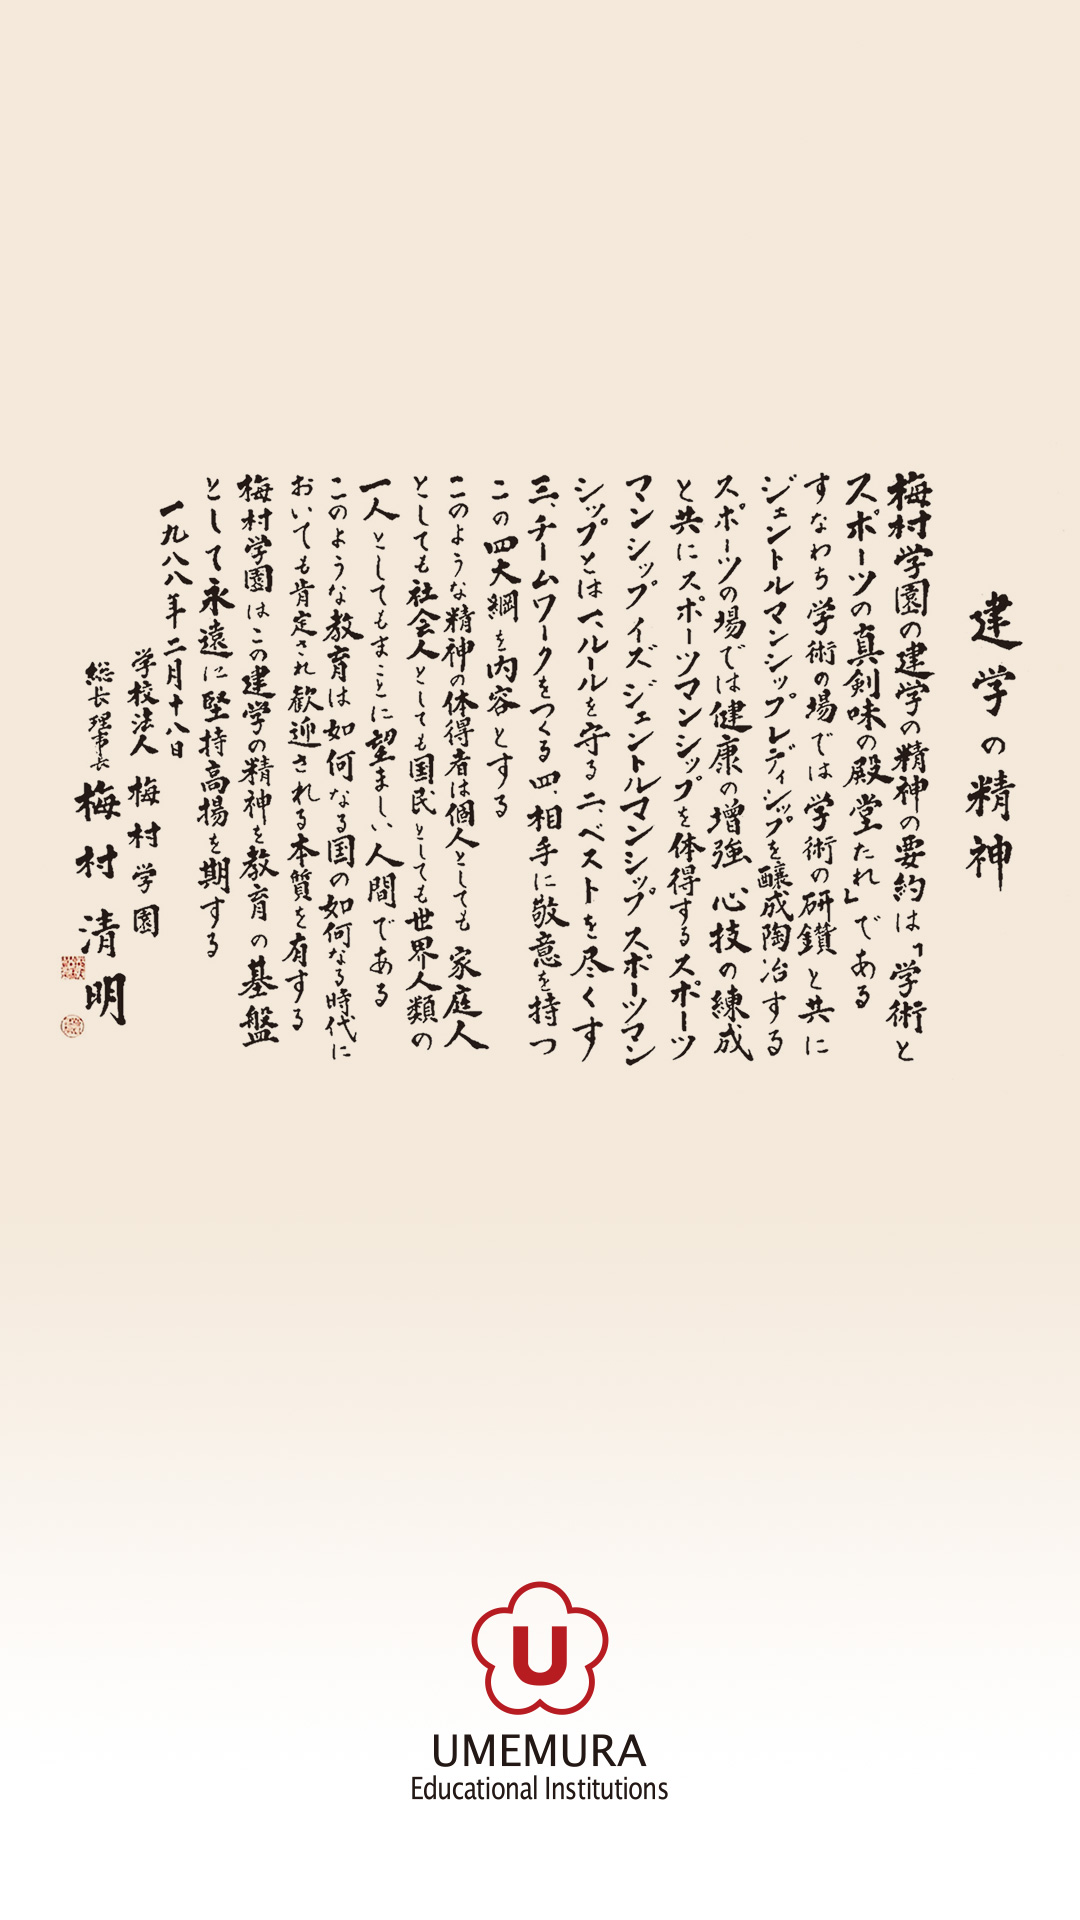 建学の精神
梅村学園の建学の精神の要約は「学術と
スポーツの真剣味の殿堂たれ」である
すなわち学術の場では学術の研鑽と共に
ジェントルマンシップレディシップを醸成陶冶する
スポーツの場では健康の増強 心技の練成
と共にスポーツマンシップを体得するスポーツ
マンシップイズジェントルマンシップスポーツマン
シップとは一、ルールを守る二、ベストを尽くす
三、チームワークをつくる四、相手に敬意を持つ
この四大綱を内容とする
このような精神の体得者は個人としても家庭人
としても社会人としても国民としても世界人類の
一人としてもまことに望ましい人間である
このような教育は如何なる国の如何なる時代に
おいても肯定され歓迎される本質を有する
梅村学園はこの建学の精神を教育の基盤
として永遠に堅持高揚を期する
一九八八年二月十八日
学校法人 梅村学園
総長理事長 梅村清明
U
UMEMURA
Educational Institutions